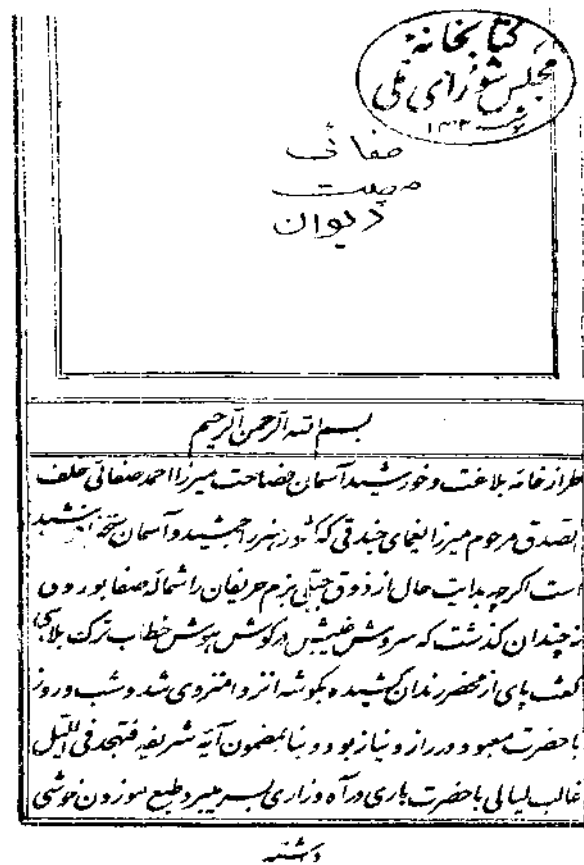 کتابخانهٔ
مجلس شورای ملی
صفائی
دیوان
بسم الله الرحمن الرحیم
طراز خانه بلاغت و خورشید آسمان فصاحت میرزا احمد صفائی خلف
الصدق مرحوم میرزا یغمای جندقی که کشور هنر را جمشید و آسمان
است اگرچه بدایت حال از ذوق جبلی بزم حریفان را شمالهٔ صفا بود وی
نه چندان گذشت که سروش غیبیش در گوش هوش خطاب ترک
گفت پای از محضر رندان کشیده بگوشه انزوا منزوی شد و شب و روز
با حضرت معبود در راز و نیاز بود و بنا بمضمون آیه شریفه فتهجد فی اللیل
غالب لیالی با حضرت باری در آه و زاری بسر میبرد طبع موزون خوشی
داشته